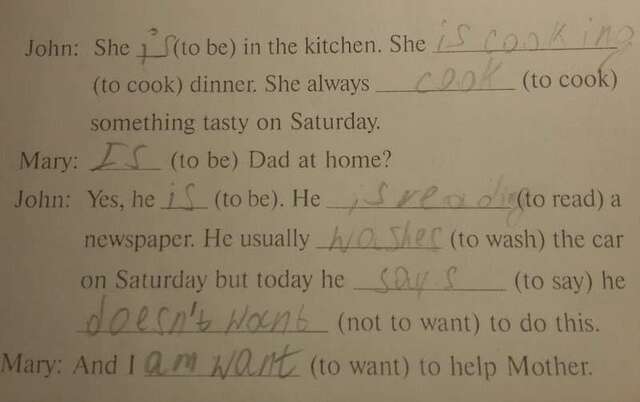 John: She is (to be) in the kitchen. She is cooking
(to cook) dinner. She always cook (to cook)
something tasty on Saturday.
Mary: Is (to be) Dad at home?
John: Yes, he is (to be). He is reading (to read) a
newspaper. He usually washes (to wash) the car
on Saturday but today he says (to say) he
doesn't want (not to want) to do this.
Mary: And I am want (to want) to help Mother.